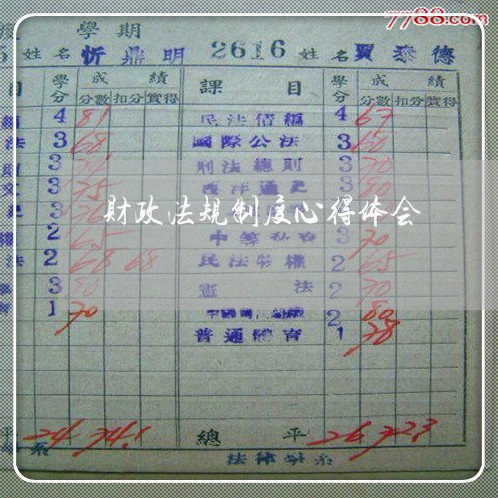 7788.com
學期
姓名 忻鼎明 2616 姓名 賈泰德
目 學分 成績 課目 學分 成績
分數 扣分 實得 分數 扣分 實得
4 81 民法債編 4 67
法 3 68 國際公法 3 60
3 刑法總則 3 70
3 75 西洋通史 3 80
財政法規制度心得体会
2 65 3 70
法 2 68 68 民法物權 2 65
3 80 憲法 2 70
1 70 2 80
普通體育 1 78
平 24 74.1 總平 26 72.3
系 法律學系